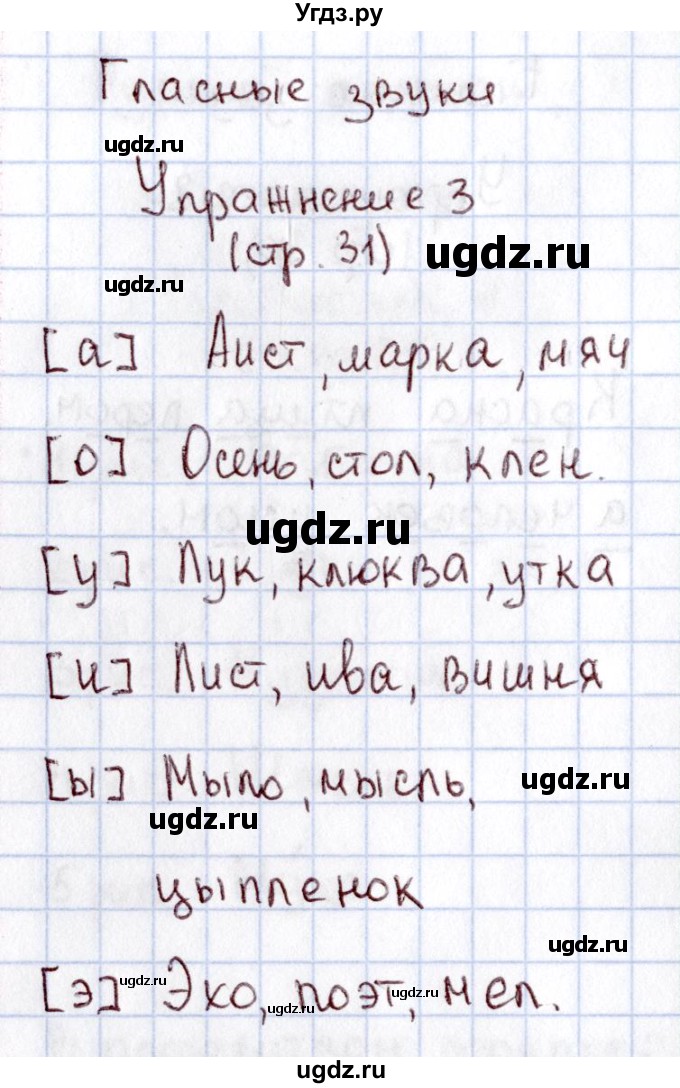 Угдз.ру
Гласные звуки
ugdz.ru
Упражнение 3
(стр. 31) ugdz.ru
ugdz.ru
[а] Аист, марка, мяч
[о] Осень, стол, клен.
ugdz.ru
[у] Лук, клюква, утка
[и] Лист, ива, вишня
[ы] Мыло, мысль, ugdz.ru
ugdz.ru
цыпленок
ugdz.ru
[э] ugdz.ru Эхо, поэт, мел. ugdz.ru
ugdz.ru